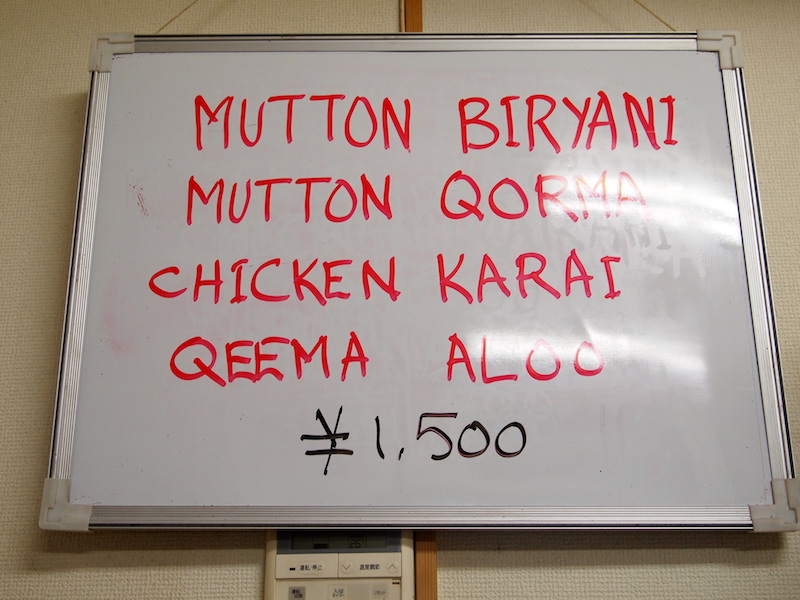 MUTTON BIRYANI
MUTTON QORMA
CHICKEN KARAI
QEEMA ALOO
¥1,500
運転/停止
温度調節